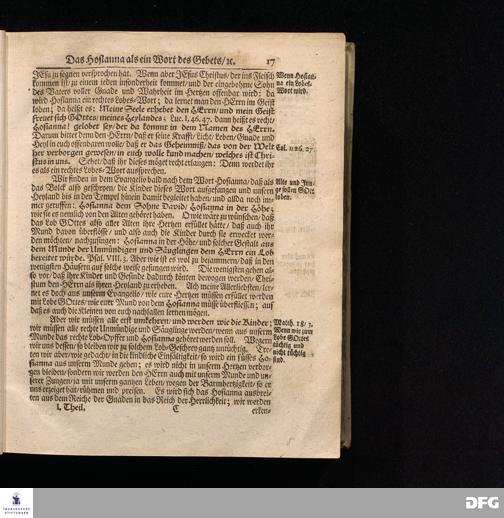 Das Hosianna als ein Wort des Gebets/ ꝛc. 17
JEsu zu segnen versprochen hat. Wenn aber JEsus Christus/ der ins Fleisch
kommen ist/ zu einem ieden insonderheit kommet/ und der eingebohrne Sohn
des Vaters voller Gnade und Wahrheit im Hertzen offenbar wird: da
wird Hosianna ein rechtes Lobes-Wort; da lernet man den HErrn im Geist
loben; da heißt es: Meine Seele erhebet den HErrn/ und mein Geist
freuet sich GOttes/ meines Heylandes; Luc. 1, 46. 47. dann heißt es recht/
Hosianna! gelobet sey/ der da kommt in dem Namen des HErrn.
Darum bittet denn den HErrn/ daß er seine Krafft/ Licht/ Leben/ Gnade und
Heyl in euch offenbaren wolle/ daß er das Geheimniß/ das von der Welt
her verborgen gewesen/ in euch wolle kund machen/ welches ist Chri-
stus in uns. Sehet/ daß ihr dieses möget recht erlangen: Denn werdet ihr
es als ein rechtes Lobes-Wort aussprechen.
Wir finden in dem Evangelio bald nach dem Wort Hosianna/ daß als
das Volck also geschryen/ die Kinder dieses Wort aufgefangen und unsern
Heyland bis in den Tempel hinein damit begleitet haben/ und allda noch im-
mer geruffen: Hosianna dem Sohne David/ Hosianna in der Höhe;
wie sie es nemlich von den Alten gehöret haben. O wie wäre zu wünschen/ daß
das Lob GOttes also aller Alten ihre Hertzen erfüllet hätte/ daß auch ihr
Mund davon überflösse/ und also auch die Kinder durch sie erwecket wer-
den möchten/ nachzusingen: Hosianna in der Höhe/ und solcher Gestalt aus
dem Munde der Unmündigen und Säuglingen dem HErrn ein Lob
bereitet würde. Psal. VIII. 3. Aber wie ist es wol zu bejammern/ daß in den
wenigsten Häusern auf solche weise gesungen wird. Die wenigsten gehen al-
so vor/ daß ihre Kinder und Gesinde dadurch könten bewogen werden/ Chri-
stum den HErrn als ihren Heyland zu erheben. Ach meine Allerliebsten/ ler-
net es doch aus unserm Evangelio/ wie eure Hertzen müssen erfüllet werden
mit Lobe GOttes/ wie eure Mund von dem Hosianna müsse überfliessen; auf
daß es auch die Kleinen von euch nachlallen lernen mögen.
Aber wir müssen alle erst umkehren/ und werden wie die Kinder;
wir müssen alle rechte Unmündige und Säuglinge werden/ wenn aus unserm
Munde das rechte Lob-Opffer und Hosianna gehöret werden soll. Wegern
wir uns dessen/ so bleiben wir zu solchem Lob-Geschrey gantz untüchtig. Tre-
ten wir aber/ wie gedacht/ in die kindliche Einfältigkeit/ so wird ein süsses Ho-
sianna aus unserm Munde gehen; es wird nicht in unserm Hertzen verbor-
gen bleiben/ sondern wir werden den HErrn auch mit unserm Munde und un-
serer Zungen/ ja mit unserm gantzen Leben/ wegen der Barmhertzigkeit/ so er
uns erzeiget hat/ rühmen und preisen. Es wird sich das Hosianna ausbrei-
ten aus dem Reiche der Gnaden in das Reich der Herrlichkeit; wir werden
I. Theil. C erken-
Wenn Hosian-
na ein Lobes-
Wort wird.
Col. 1. 26. 27.
Alte und Jun-
ge sollen GOtt
loben.
Matth. 18/ 3.
Wenn wir zum
Lobe GOttes
tüchtig und
nicht tüchtig
sind.
FRANCKESCHE
STIFTUNGEN
DFG